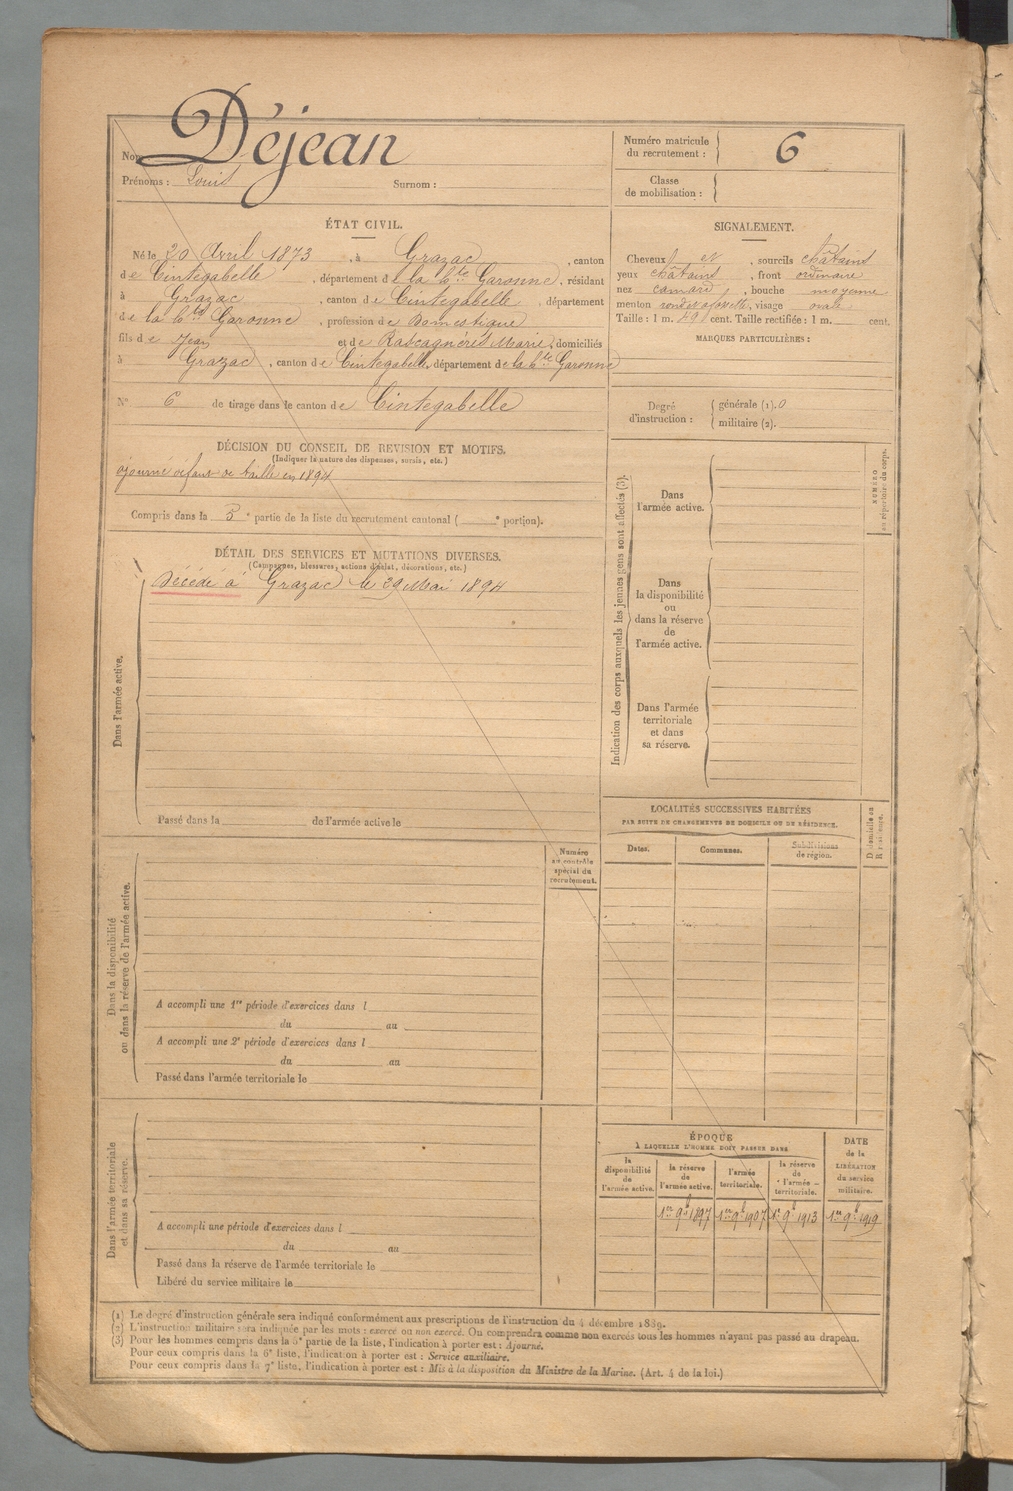 Nom Déjean
Prénoms : Louis Surnom :
Numéro matricule du recrutement : 6
Classe de mobilisation :
ÉTAT CIVIL.
Né le 20 Avril 1873, à Grazac, canton
de Cintegabelle, département de la hte Garonne, résidant
à Grazac, canton de Cintegabelle, département
de la hte Garonne, profession de Domestique
fils de Jean et de Rascagnères Marie, domiciliés
à Grazac, canton de Cintegabelle, département de la hte Garonne
N° 6 de tirage dans le canton de Cintegabelle
SIGNALEMENT.
Cheveux et, sourcils châtains
yeux châtains, front ordinaire
nez camard, bouche moyenne
menton rond et fossette, visage ovale
Taille : 1 m. 49 cent. Taille rectifiée : 1 m. cent.
MARQUES PARTICULIÈRES :
Degré d'instruction : générale (1). 0
militaire (2).
DÉCISION DU CONSEIL DE REVISION ET MOTIFS.
(Indiquer la nature des dispenses, sursis, etc.)
ajourné défaut de taille en 1894
Compris dans la 3e partie de la liste du recrutement cantonal ( e portion).
DÉTAIL DES SERVICES ET MUTATIONS DIVERSES.
(Campagnes, blessures, actions d'éclat, décorations, etc.)
Décédé à Grazac le 29 Mai 1894
Dans l'armée active.
Passé dans la de l'armée active le
Indication des corps auxquels les jeunes gens sont affectés (3).
NUMÉRO au répertoire du corps.
Dans l'armée active.
Dans la disponibilité ou dans la réserve de l'armée active.
Dans l'armée territoriale et dans sa réserve.
LOCALITÉS SUCCESSIVES HABITÉES
PAR SUITE DE CHANGEMENTS DE DOMICILE OU DE RÉSIDENCE.
Dates. Communes. Subdivisions de région. D domicile ou R résidence.
Numéro au contrôle spécial du recrutement.
Dans la disponibilité ou dans la réserve de l'armée active.
A accompli une 1re période d'exercices dans l
du au
A accompli une 2e période d'exercices dans l
du au
Passé dans l'armée territoriale le
Dans l'armée territoriale et dans sa réserve.
A accompli une période d'exercices dans l
du au
Passé dans la réserve de l'armée territoriale le
Libéré du service militaire le
ÉPOQUE
À LAQUELLE L'HOMME DOIT PASSER DANS
la disponibilité de l'armée active. la réserve de l'armée active. l'armée territoriale. la réserve de l'armée territoriale.
DATE de la LIBÉRATION du service militaire.
1er 9b 1897 1er 9b 1907 1er 9b 1913 1er 9b 1919
(1) Le degré d'instruction générale sera indiqué conformément aux prescriptions de l'instruction du 4 décembre 1889.
(2) L'instruction militaire sera indiquée par les mots : exercé ou non exercé. On comprendra comme non exercés tous les hommes n'ayant pas passé au drapeau.
(3) Pour les hommes compris dans la 5e partie de la liste, l'indication à porter est : Ajourné.
Pour ceux compris dans la 6e liste, l'indication à porter est : Service auxiliaire.
Pour ceux compris dans la 7e liste, l'indication à porter est : Mis à la disposition du Ministre de la Marine. (Art. 4 de la loi.)